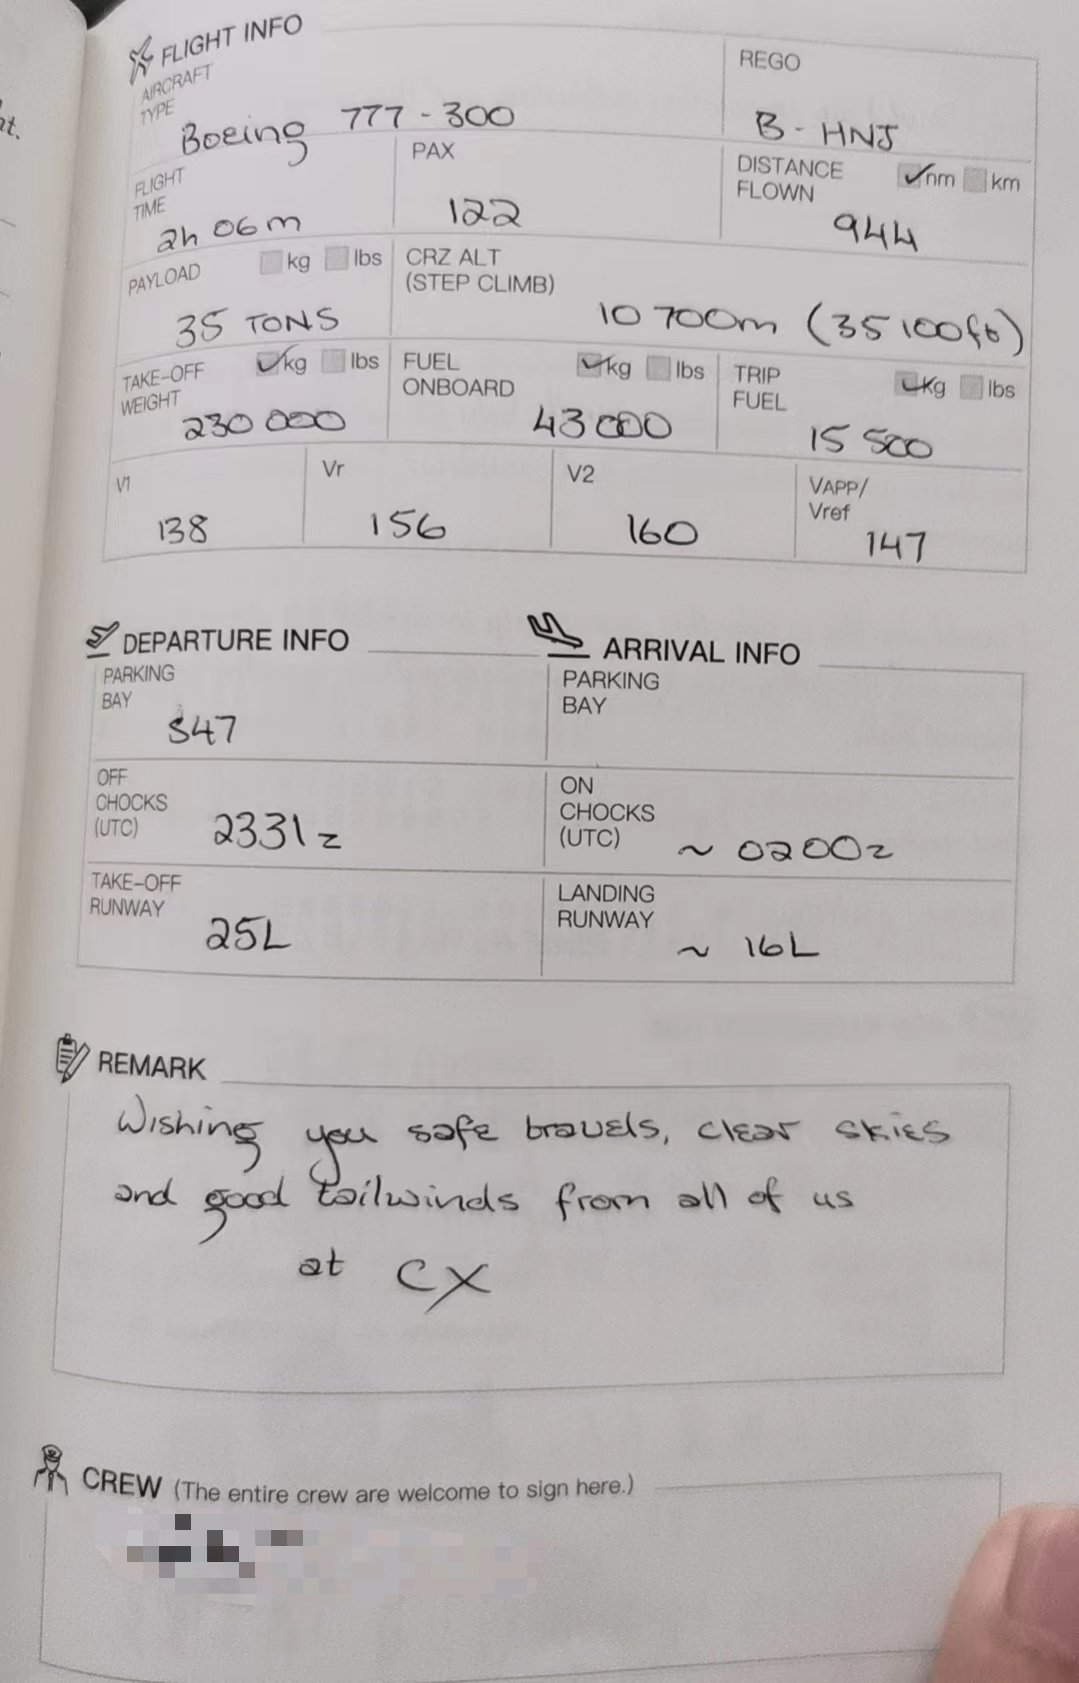 FLIGHT INFO
AIRCRAFT TYPE
Boeing 777 - 300
REGO
B - HNJ
FLIGHT TIME
2h 06m
PAX
122
DISTANCE FLOWN
nm km
944
PAYLOAD
kg lbs
35 TONS
CRZ ALT
(STEP CLIMB)
10 700m (35 100ft)
TAKE-OFF WEIGHT
kg lbs
230 000
FUEL ONBOARD
kg lbs
43 000
TRIP FUEL
kg lbs
15 500
V1
138
Vr
156
V2
160
VAPP/
Vref
147
DEPARTURE INFO
PARKING BAY
S47
OFF CHOCKS (UTC)
2331z
TAKE-OFF RUNWAY
25L
ARRIVAL INFO
PARKING BAY
ON CHOCKS (UTC)
~ 0200z
LANDING RUNWAY
~ 16L
REMARK
Wishing you safe travels, clear skies
and good tailwinds from all of us
at CX
CREW (The entire crew are welcome to sign here.)